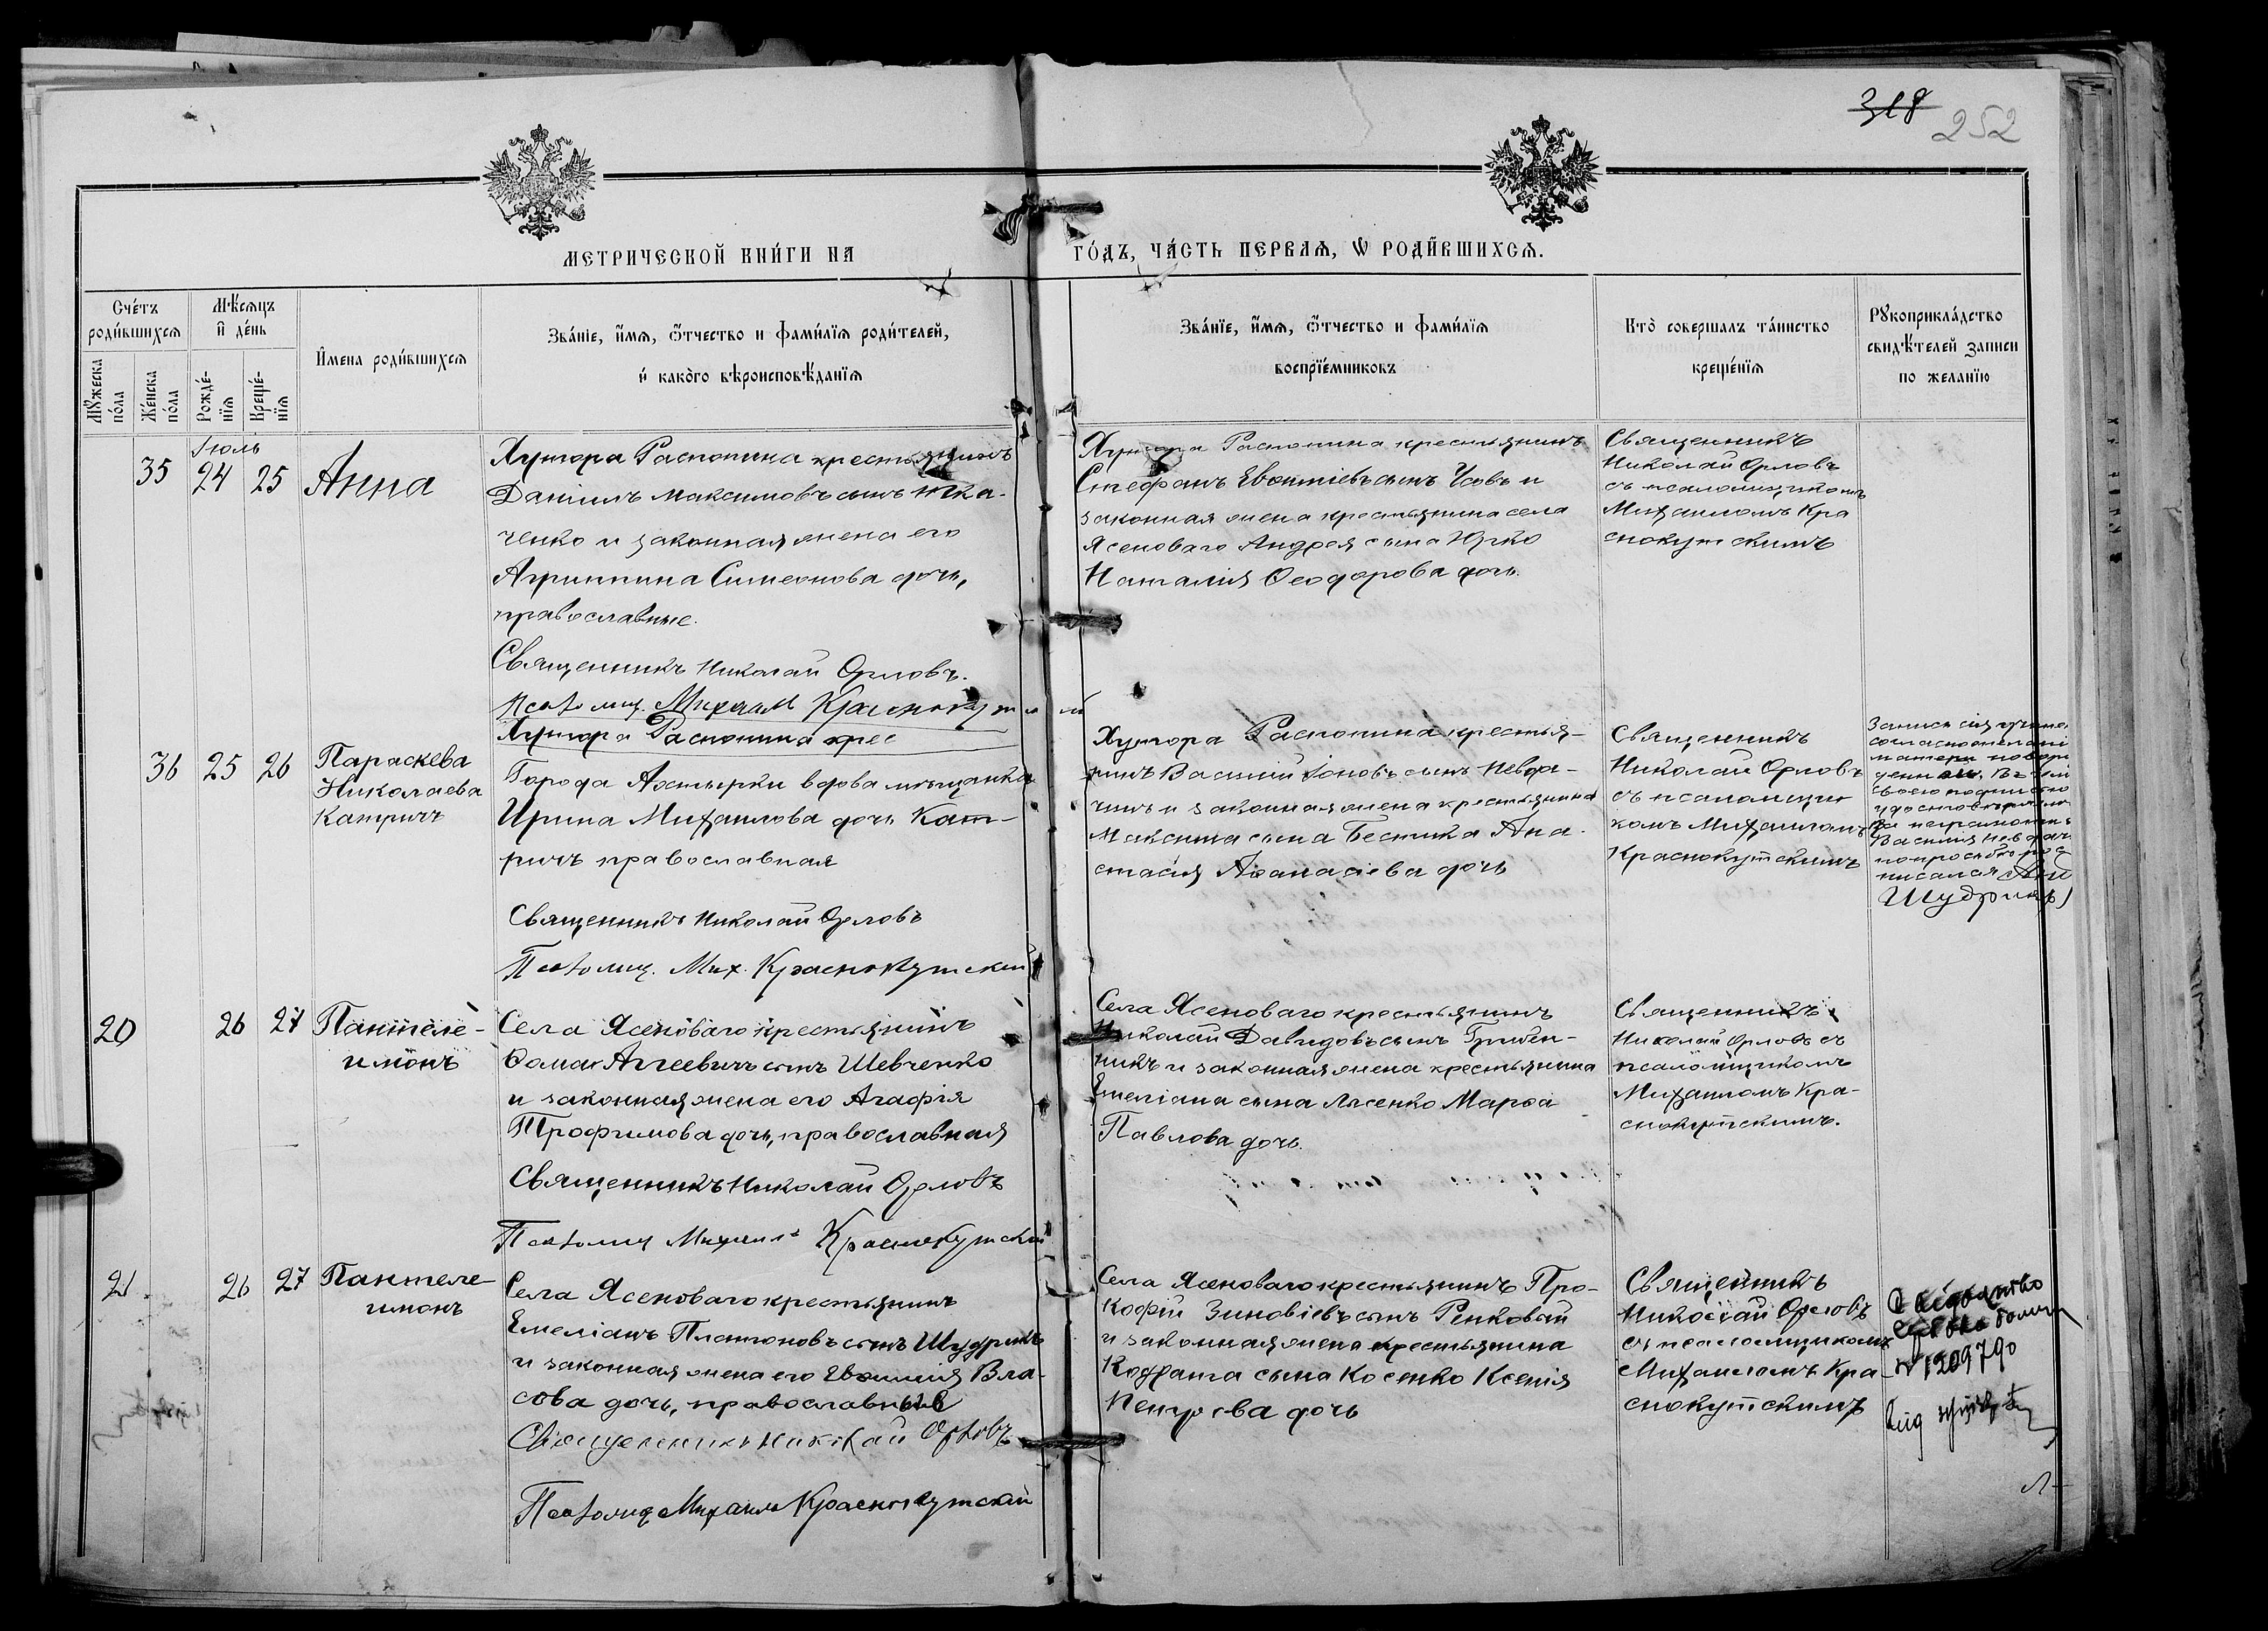 318
252
МЕТРИЧЕСКОЙ КНИ́ГИ НА
ГО́ДЪ, ЧА́СТЬ ПЕРВАѦ, Ѡ РОДИ́ВШИХСѦ.
Сче́тъ
роди́вшихсѧ
Мѣ́сѧцъ
и҆ де́нь
Мꙋ́жеска
по́ла
Же́нска
по́ла
Рожде́-
нїѧ
Креще́-
нїѧ
И҆мена роди́вшихсѧ
Зва́нїе, и҆́мѧ, ѻ҆́тчество и фами́лїѧ роди́телей,
и҆ како́го вѣроисповѣ́данїѧ
Зва́нїе, и҆́мѧ, ѻ҆́тчество и фами́лїѧ
воспрїе́мниковъ
Кто̀ совершалъ та́инство
креще́нїѧ
Рꙋкоприкла́дство
свидѣ́телей записи
по желанїю
Іюль
35 24 25 Анна
Хутора Распопина крестьянинъ
Даніилъ Максимовъ сынъ Тка-
ченко и законная жена его
Агриппина Симеонова дочь,
православные.
Священникъ Николай Орловъ.
Псаломщ. Михаилъ Краснокутскій
Хутора Распопина крес
Хутора Распопина крестьянинъ
Стефанъ Евфиміевъ сынъ Усовъ и
законная жена крестьянина села
Ясеноваго Андрея сына
Наталія Ѳеодорова дочь.
Священникъ
Николай Орловъ
съ псаломщикомъ
Михаиломъ Кра
снокутскимъ
36 25 26 Параскева
Николаева
Катричъ
Города Ахтырки вдова мѣщанка
Ирина Михаилова дочь Кат-
ричъ православная
Священникъ Николай Орловъ
Псаломщ. Мих. Краснокутскій
Хутора Распопина крестья-
нинъ Василій Іоновъ сынъ Невда-
чинъ и законная жена крестьянина
Максима сына Бесника Ана-
стасія Аѳанасіева дочь
Священникъ
Николай Орловъ
съ псаломщи-
комъ Михаиломъ
Краснокутскимъ
Запись сія учине
согласно желані
матери новоро
своею подписью
удостовѣряю
За неграмотн
Василія Невдач
по просьбѣ рос
писался
Шудрикъ
20 26 27 Пантеле-
имонъ
Села Ясеноваго крестьянинъ
Ѳома Аггеевичъ сынъ Шевченко
и законная жена его Агафія
Трофимова дочь, православная
Священникъ Николай Орловъ
Псаломщ Михаилъ Краснокутскій
Села Ясеноваго крестьянинъ
Николай Давидовъ сынъ Гребен-
никъ и законная жена крестьянина
Емеліана сына Лысенко Марѳа
Павлова дочь.
Священникъ
Николай Орловъ съ
псаломщикомъ
Михаиломъ Кра-
снокутскимъ.
21 26 27 Пантеле-
имонъ
Села Ясеноваго крестьянинъ
Емеліанъ Платоновъ сынъ Шудрикъ
и законная жена его Евфимія Вла-
сова дочь, православные
Священникъ Николай Орловъ
Псаломщ Михаилъ Краснокутскій
Села Ясеноваго крестьянинъ Про-
кофій Зиновіевъ сынъ Ренковый
и законная жена крестьянина
Кодрата сына Косенко Ксенія
Петрова дочь
Священникъ
Николай Орловъ
съ псаломщикомъ
Михаиломъ Кра-
снокутскимъ
№ 1209790